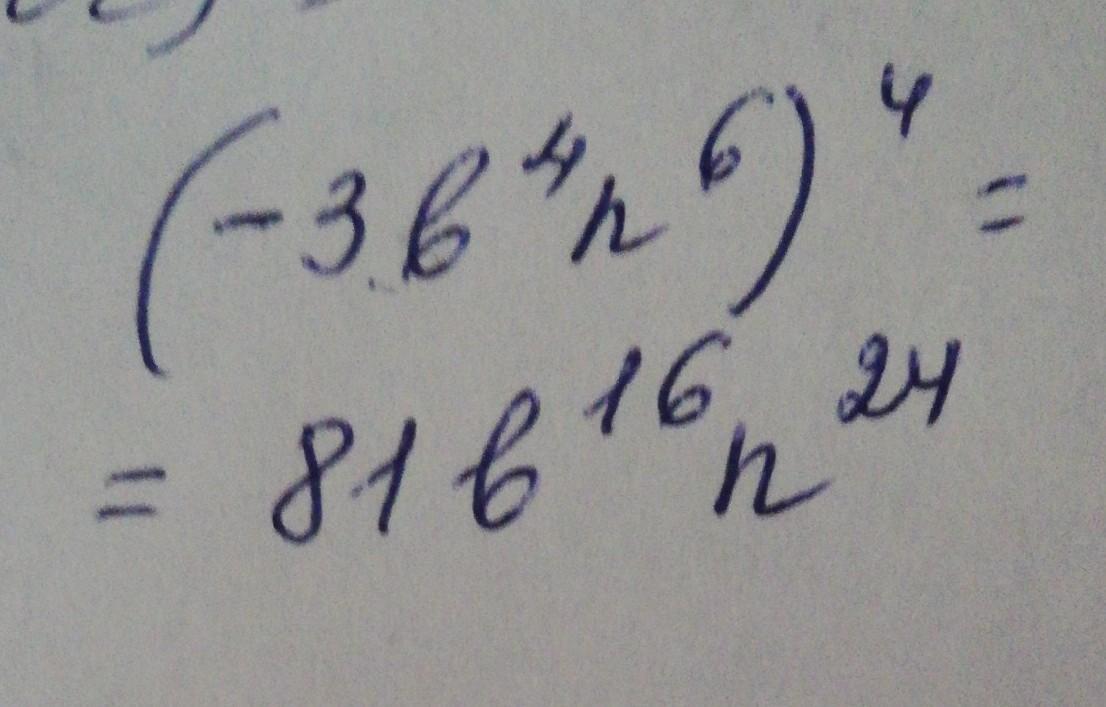 (-3b⁴n⁶)⁴ =
= 81b¹⁶n²⁴